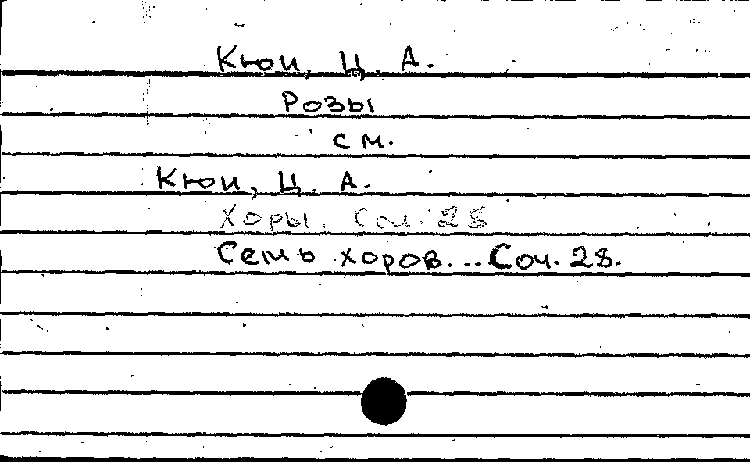 Кюи, Ц. А.
Розы
см.
Кюи, Ц. А.
Хоры. Соч. 28
Семь хоров... Соч. 28.